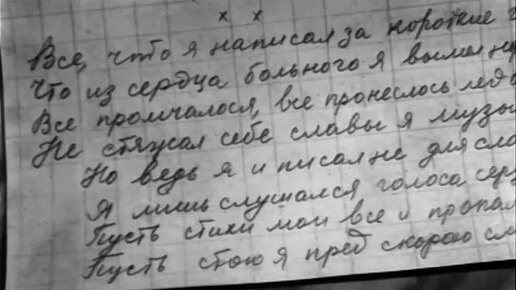 х х
Все, что я написал за короткие
Что из сердца больного я вылил
Все промчалося, все пронеслось
Не стяжал себе славы я
Но ведь я и писал не для
Я лишь слушался голоса
Пусть стихи мои все и
Пусть стою я пред скорою